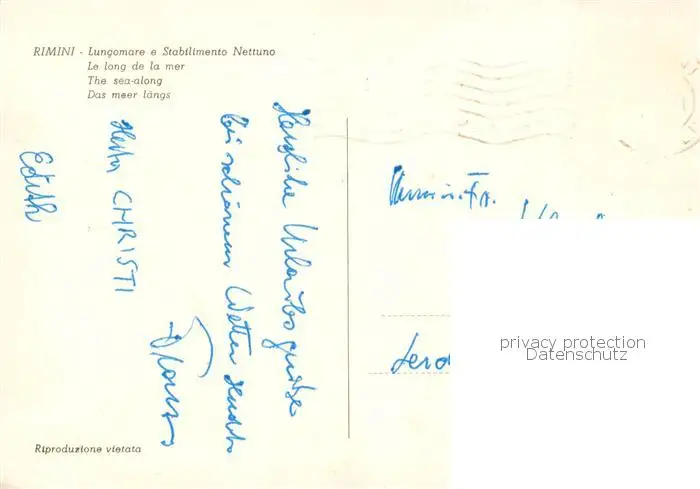 RIMINI - Lungomare e Stabilimento Nettuno
Le long de la mer
The sea-along
Das meer längs
Herzliche Urlaubsgrüße
bei schönem Wetter sendet
Thomas
CHRISTI
Edith
Fa.
privacy protection
Datenschutz
Riproduzione vietata